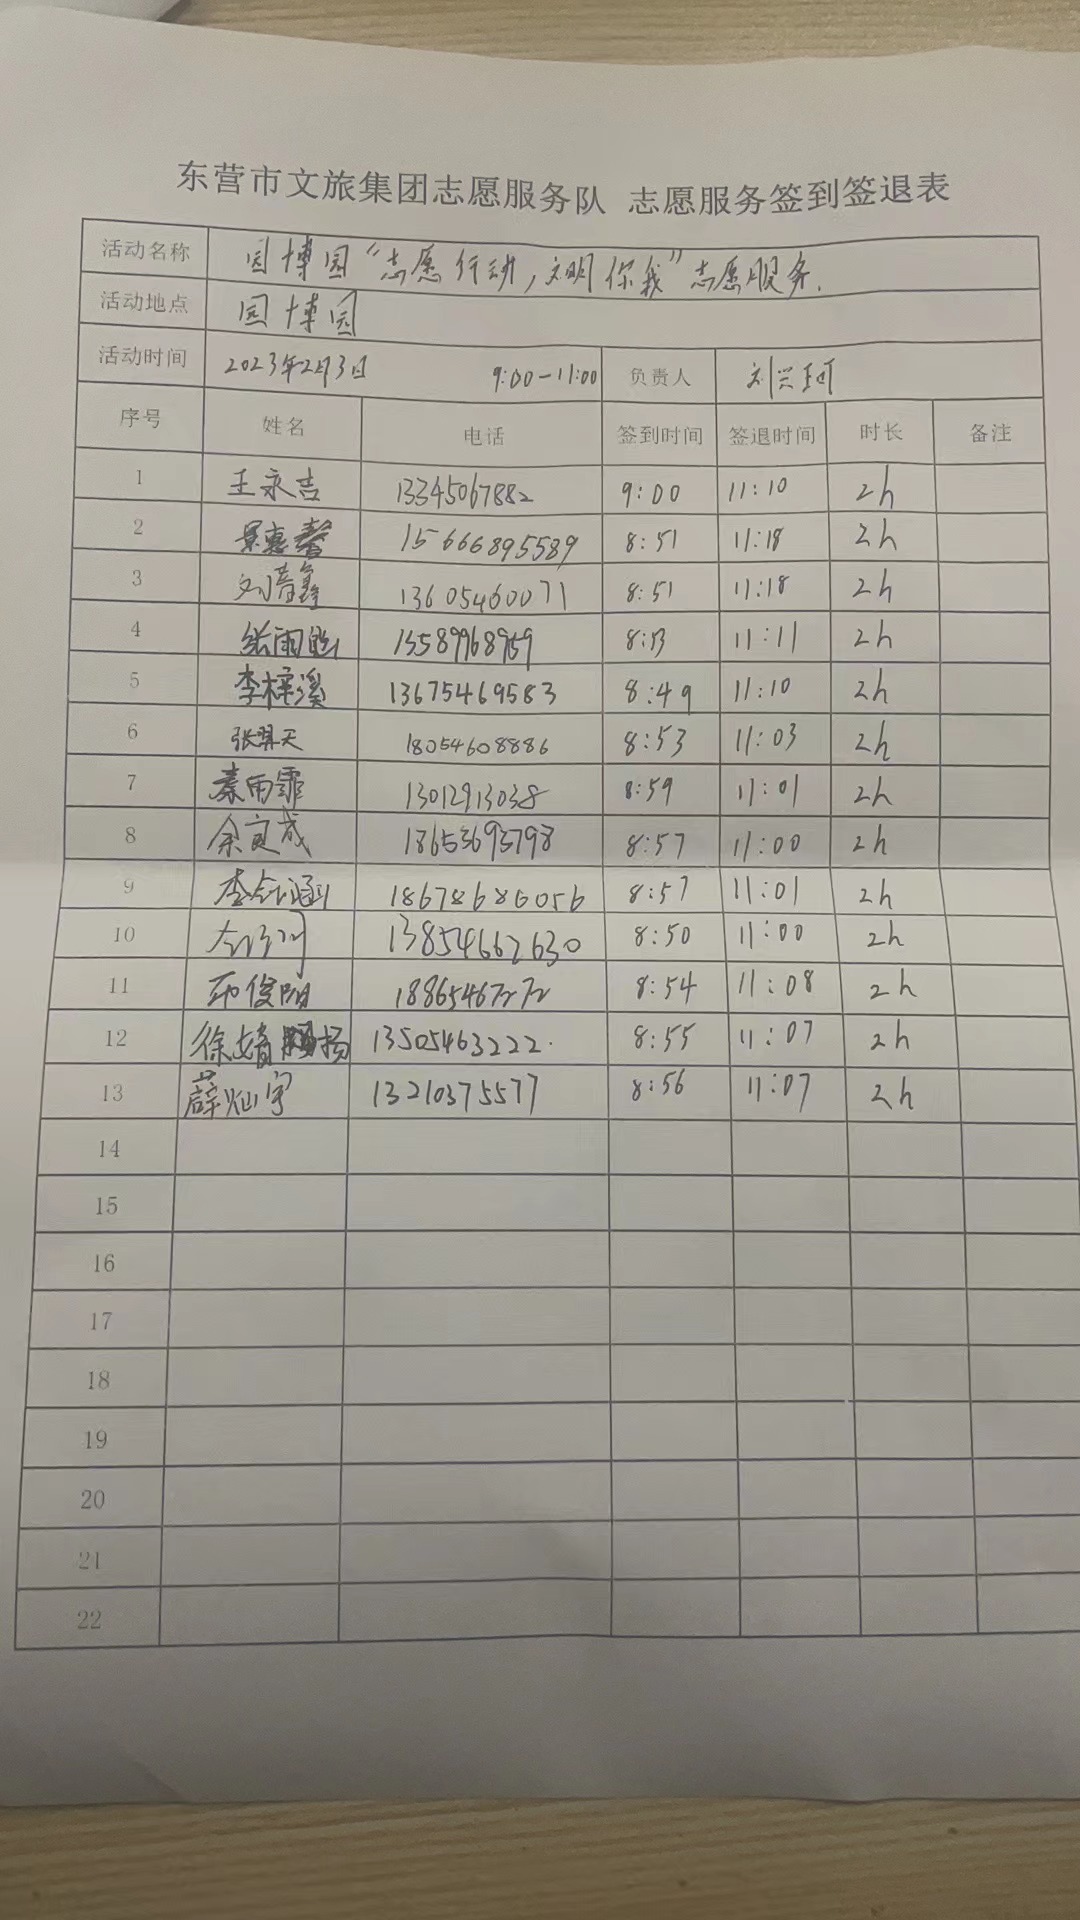 东营市文旅集团志愿服务队 志愿服务签到签退表
活动名称 园博园“志愿行动，文明你我”志愿服务.
活动地点 园博园
活动时间 2023年2月3日 9:00-11:00 负责人 刘兴珂
序号 姓名 电话 签到时间 签退时间 时长 备注
1 王永吉 13345067882 9:00 11:10 2h
2 景惠馨 15666895589 8:51 11:18 2h
3 13605460071 8:51 11:18 2h
4 张雨 13589968959 8:53 11:11 2h
5 李梓溪 13675469583 8:49 11:10 2h
6 张羿天 18054608886 8:53 11:03 2h
7 秦雨霏 13012913038 8:59 11:01 2h
8 余宣成 18653693798 8:57 11:00 2h
9 李 涵 18678686056 8:57 11:01 2h
10 13854662630 8:50 11:00 2h
11 俊阳 18865467272 8:54 11:08 2h
12 徐 扬 13505463222. 8:55 11:07 2h
13 薛灿宇 13210375577 8:56 11:07 2h
14
15
16
17
18
19
20
21
22